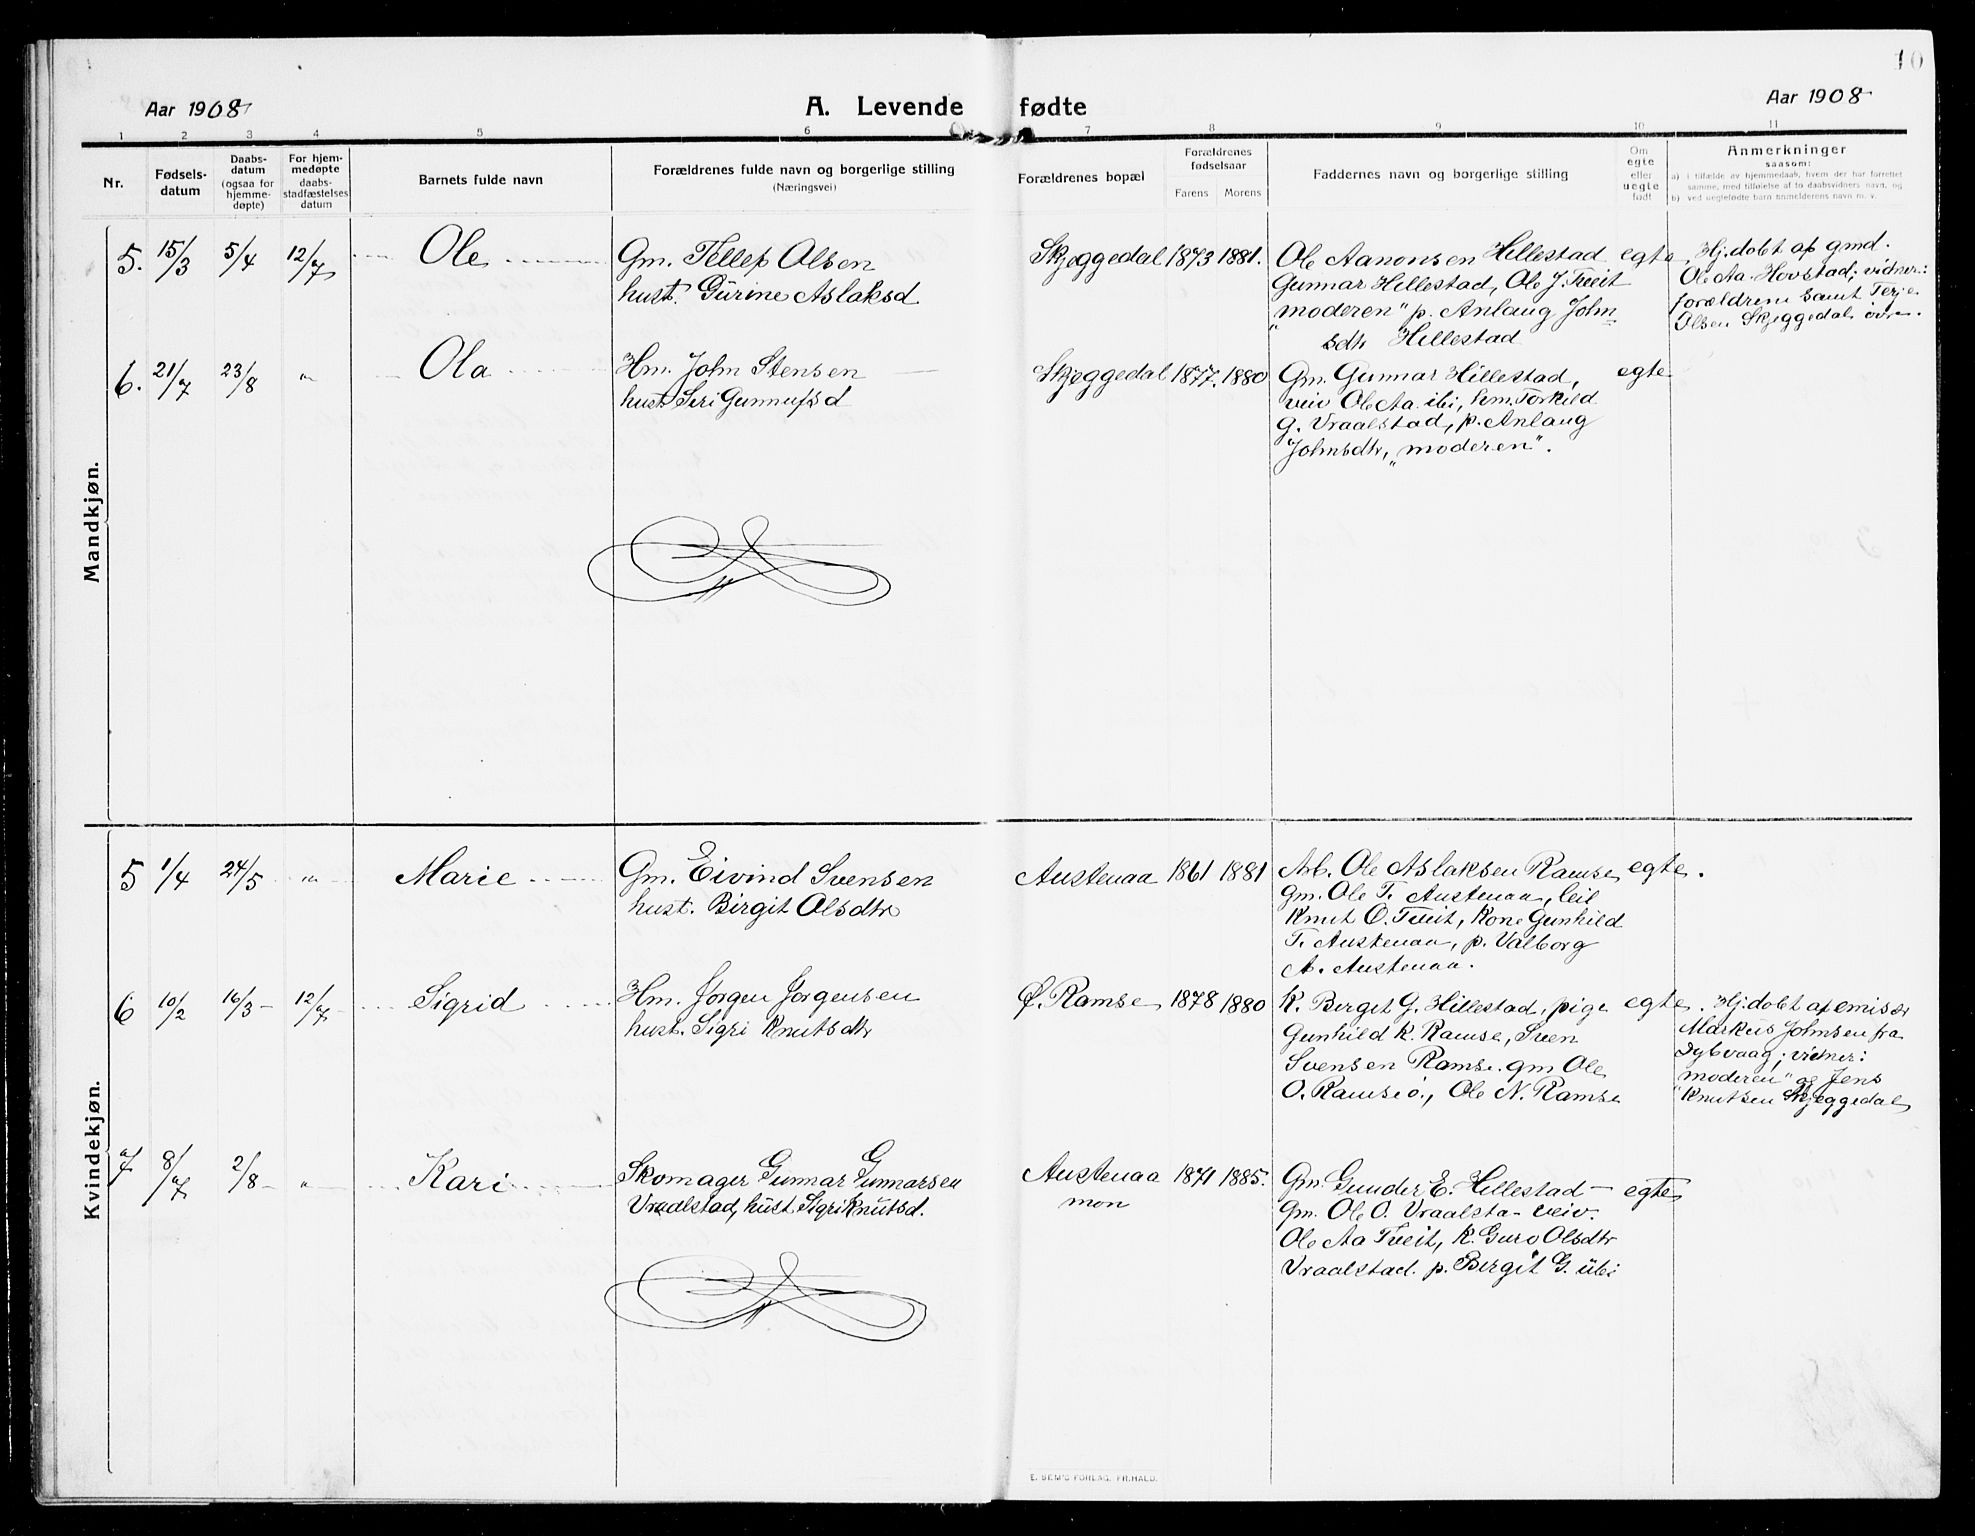 10
Aar 1908
A. Levende fødte
Aar 1908
1 2 3 4 5 6 7 8 9 10 11
Nr.
Fødsels-
datum
Daabs-
datum
(ogsaa for
hjemme-
døpte)
For hjem-
medøpte
daabs-
stadfæstelses
datum
Barnets fulde navn
Forældrenes fulde navn og borgerlige stilling
(Næringsvei)
Forældrenes bopæl
Forældrenes
fødselsaar
Farens Morens
Faddernes navn og borgerlige stilling
Om
egte
eller
uegte
født
Anmerkninger
saasom:
a) i tilfælde av hjemmedaab, hvem der har forrettet
samme, med tilføielse af to daabsvidners navn, og
b) ved uegtefødte barn anmelderens navn m. v.
Mandkjøn.
5. 15/3 5/4 12/7 Ole
Gm. Tellef Olsen
hust. Gurine Aslaksd
Skjeggedal 1873 1881.
Ole Aanonsen Hillestad
Gunnar Hillestad, Ole J. Tveit
"moderen" p. Anlaug John=
sdtr Hillestad
egte
Hj.døbt af gmd.
Ole Aa. Hovstad; vidner:
forældrene samt Terje
Olsen Skjeggedal, øvre.
6. 21/7 23/8 " Ola
Hm. John Stensen
hust. Siri Gunnufsd
Skjeggedal 1877. 1880
Gm. Gunnar Hillestad,
veiv Ole Aa. ibi, hm. Torkild
G. Vraalstad, p. Anlaug
Johnsdtr, "moderen".
egte
Kvindekjøn.
5 1/4 24/5 " Marie
Gm. Eivind Svensen
hust. Birgit Olsdtr
Austenaa 1861 1881
Arb. Ole Aslaksen Ramse
gm. Ole T. Austenaa, leil
Knut O. Tveit, Kone Gunhild
T. Austenaa, p. Valborg
A. Austenaa.
egte.
6 10/2 16/3 12/7 Sigrid
Hm. Jørgen Jørgensen
hust. Sigri Knutsdtr
Ø. Ramse 1878 1880
K. Berget G. Hillestad, pige
Gunhild K. Ramse, Sven
Svensen Ramse. gm Ole
O. Ramse ø., Ole N. Ramse
egte.
Hj.døbt af emisær
Markus Johnsen fra
Dybvaag; vidner:
"moderen" og Jens
Knutsen Skjeggedal
7 8/7 2/8 " Kari
Skomager Gunnar Gunnarsen
Vraalstad, hust. Sigri Knutsd.
Austenaa
mon
1871 1885.
Gm. Gunder E. Hillestad
Gm. Ole O. Vraalsta - veiv.
Ole Aa Tveit, K. Guro Olsdtr
Vraalstad. p. Birgit G. ibi
egte
E. SEM'S FORLAG, FR.HALD.